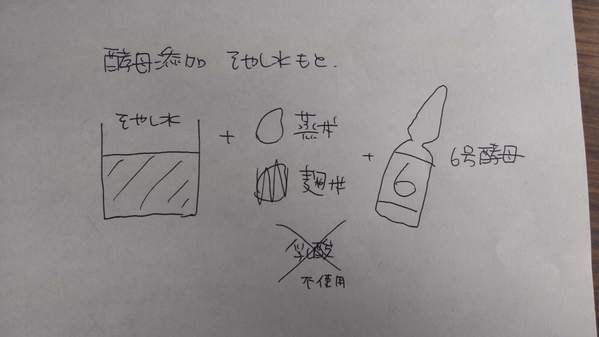 酵母添加 そやし水もと.
そやし水
+
蒸米
麹米
+
6
6号酵母
乳酸
不使用